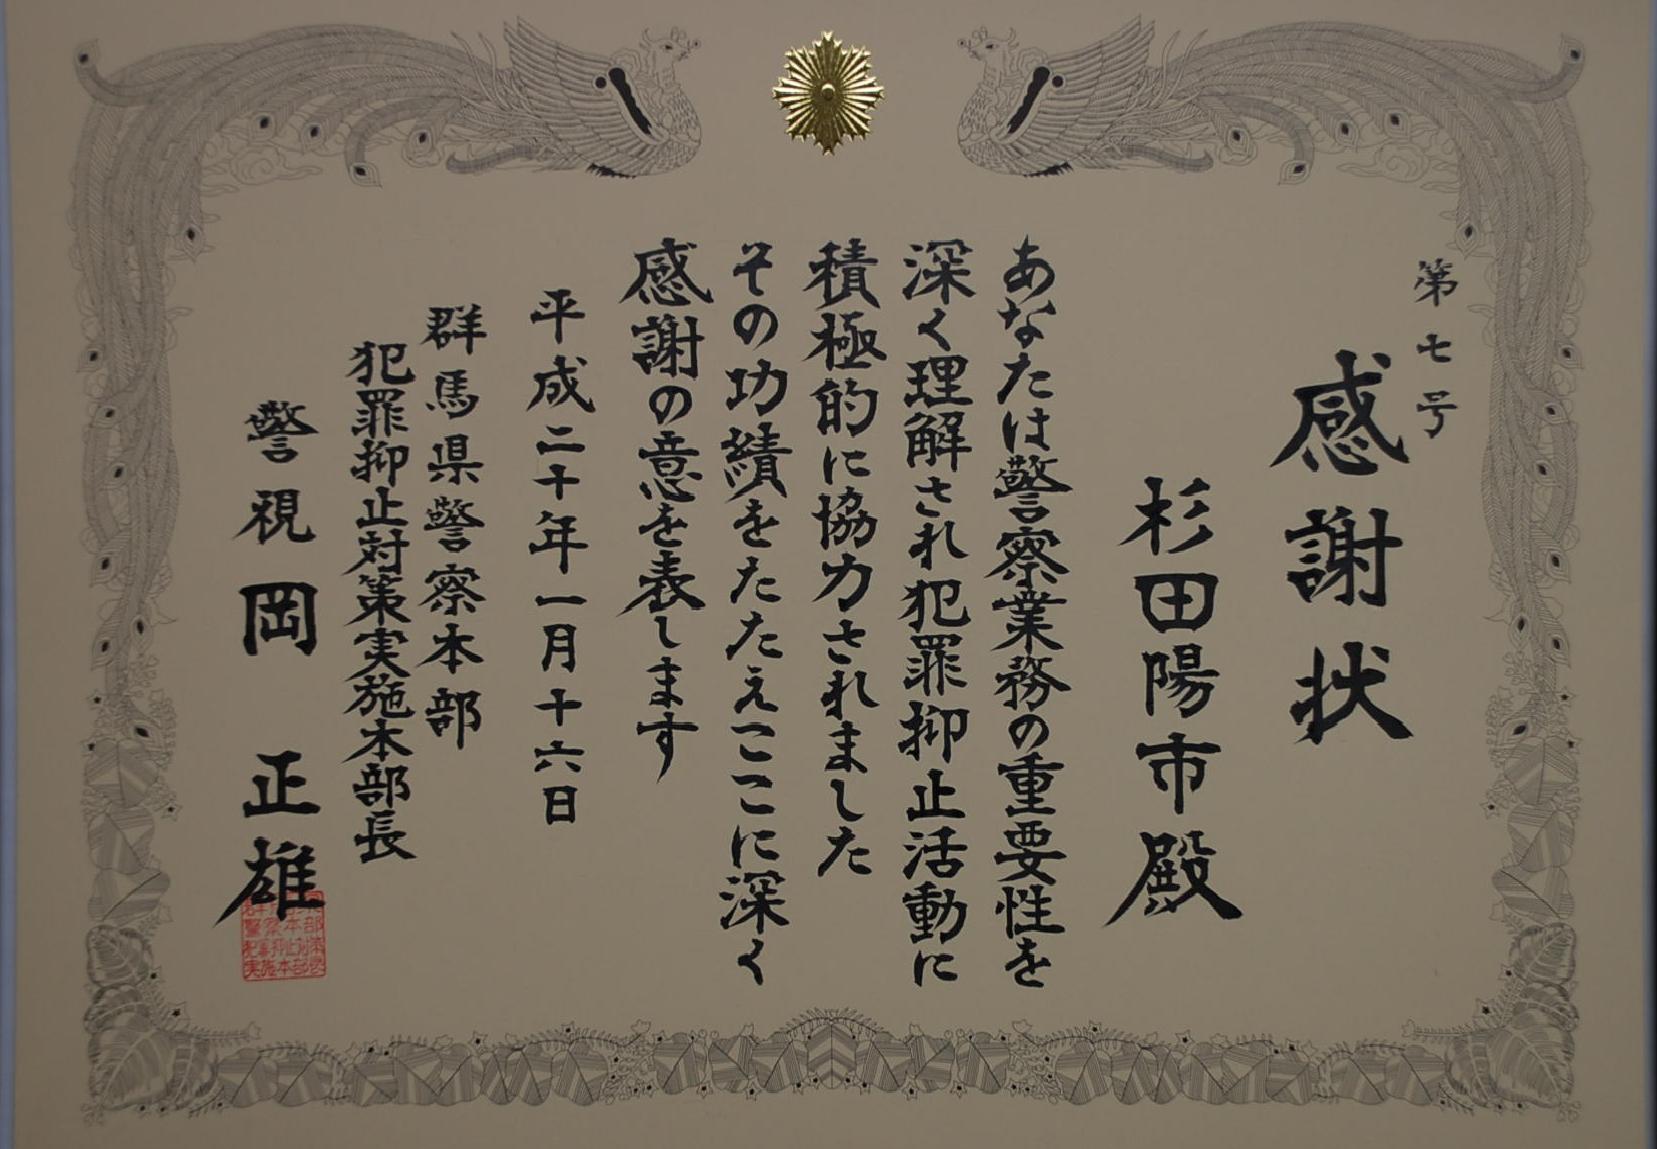 第七号
感謝状
杉田陽市殿
あなたは警察業務の重要性を
深く理解され犯罪抑止活動に
積極的に協力されました
その功績をたたえここに深く
感謝の意を表します
平成二十年一月十六日
群馬県警察本部
犯罪抑止対策実施本部長
警視岡正雄